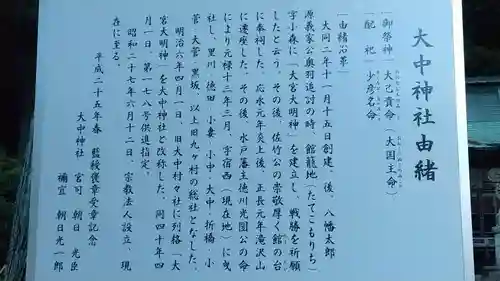 大中神社由緒
一御祭神一 大己貴命(大国主命)
一配祀一 少彦名命
一由緒沿革一
大同二年十一月十五日創建、後、八幡太郎
源義家公奥羽追討の時、館籠地(たてこもりち)
字小森に「大宮大明神」を建立し、戦勝を祈願
したと云う。その後、佐竹公の崇敬厚く館の台
に奉祠した。応永元年炎上後、正長元年滝沢山
に遷座した。その後、水戸藩主徳川光圀公の命
により元禄十三年三月、字宿西(現在地)に曳
社し、里川・徳田・小妻・小中・大中・折橋・小
菅・大菅・黒坂、以上旧九ヶ村の総社となした。
明治六年四月一日、旧大中村々社に列格「大
宮大明神」を大中神社と改称した。同四十年四
月一日、第一七八号供進指定。
昭和二十七年六月十二日、宗教法人設立、現
在に至る。
平成二十五年春 藍綬褒章受章記念
大中神社 宮司 朝日 光臣
禰宜 朝日光一郎